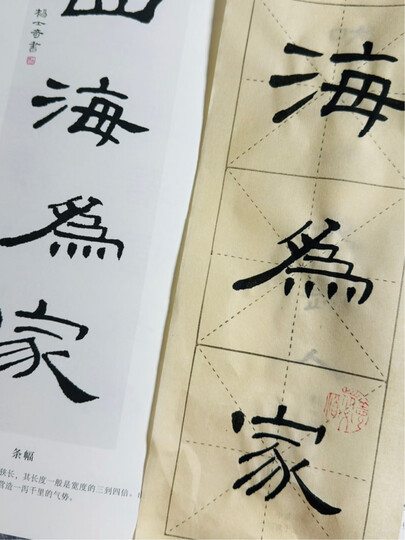 四
海
爲
家
士奇書
条幅
狭长，其长度一般是宽度的三到四倍，
营造一泻千里的气势。
海
爲
家